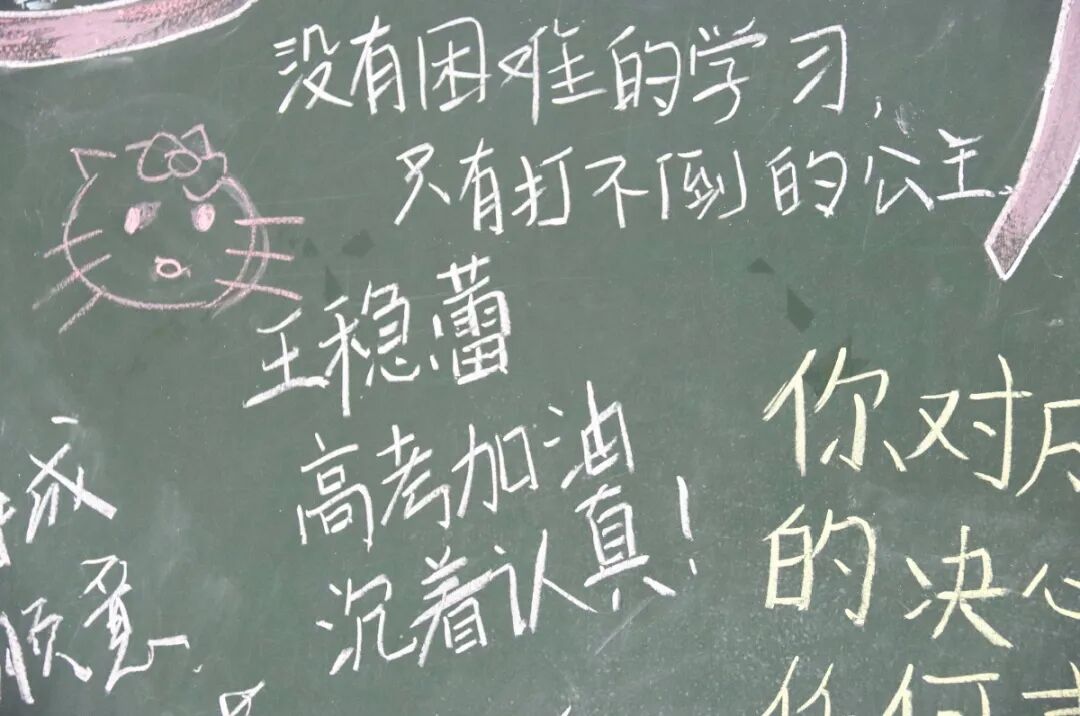 没有困难的学习,
只有打不倒的公主。
王稳蕾
高考加油
沉着认真!
你对
的决心
顺意